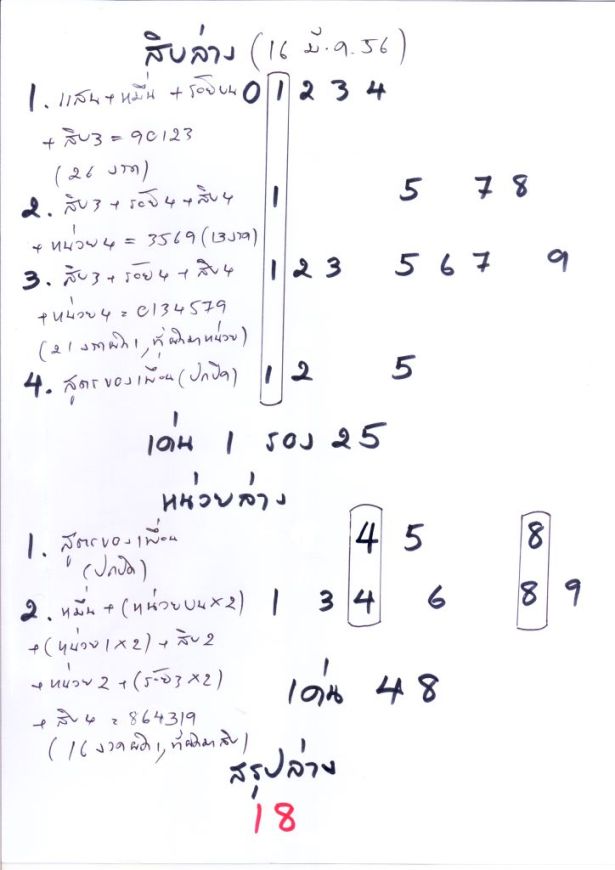 สิบล่าง (16 มี.ค.56)
1. แสน + หมื่น + ร้อยบน 0 1 2 3 4
+ สิบ3 = 90123
(26 งวด)
2. สิบ3 + ร้อย4 + สิบ4 1 5 7 8
+ หน่วย4 = 3569 (13งวด)
3. สิบ3 + ร้อย4 + สิบ4 1 2 3 5 6 7 9
+ หน่วย4 = 0134579
(21 งวดผิด1, ที่ผิดมาหน่วย)
4. สูตรของเพื่อน (ปกปิด) 1 2 5
เด่น 1 รอง 25
หน่วยล่าง
1. สูตรของเพื่อน 4 5 8
(ปกปิด)
2. หมื่น + (หน่วยบน×2) 1 3 4 6 8 9
+ (หน่วย1×2) + สิบ2
+ หน่วย2 + (ร้อย3×2)
+ สิบ4 = 864319
(16 งวดผิด1, ที่ผิดมาสิบ)
เด่น 48
สรุปล่าง
18